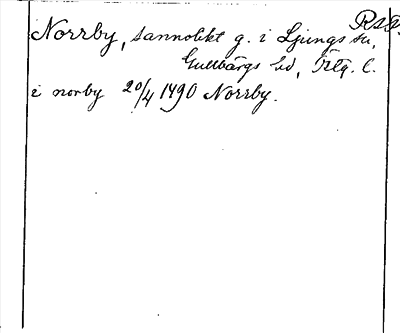 Rsg.
Norrby, sannolikt g. i Ljungs sn,
Gullbärgs hd, Ötg. l.
i norby 20/4 1490 Norrby.